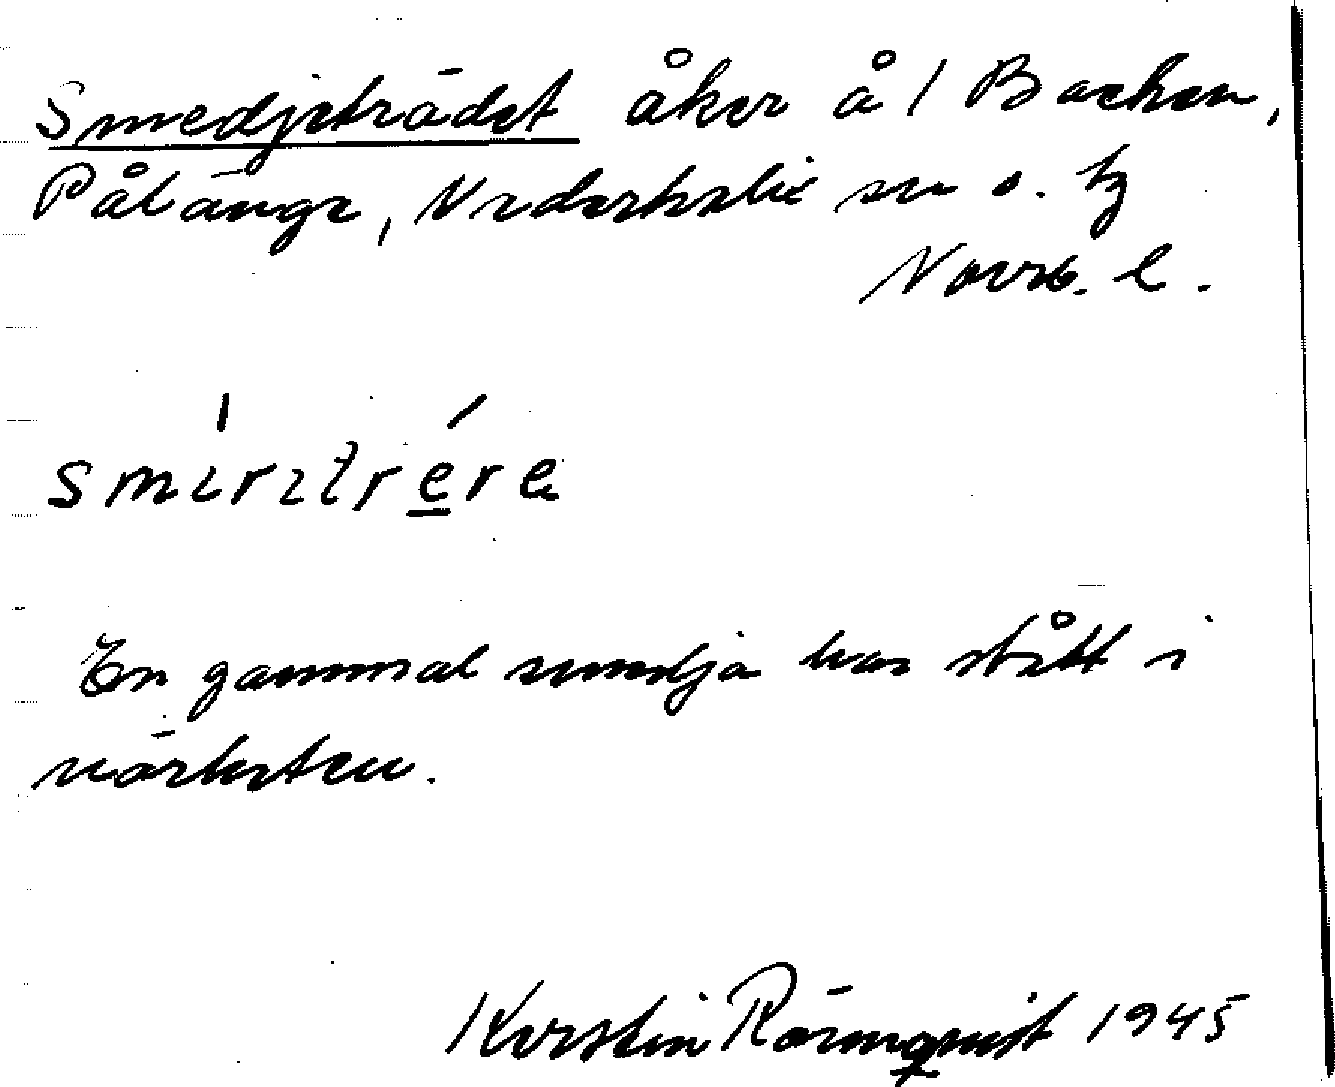 Smedjeträdet åker å 1 Backen,
Pålänge, Nederkalix sn o. tg
Norrb. l.
smırıtrere
En gammal smedja har stått i
närheten.
Kerstin Rönnquist 1945